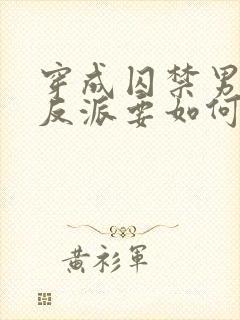 穿成囚禁男
反派要如何
黃衫軍